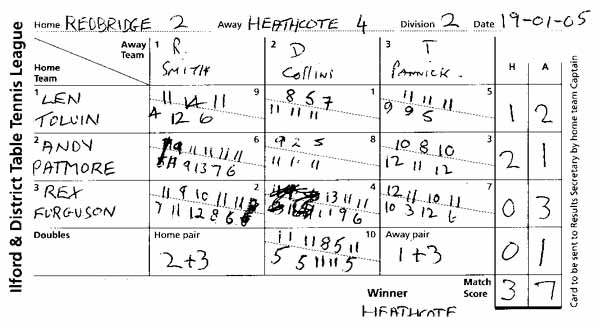 Ilford & District Table Tennis League
Home REDBRIDGE 2 Away HEATHCOTE 4 Division 2 Date 19-01-05
Away Team 1 R. 2 D 3 T H A
Home Team SMITH Collini
1 LEN 9 1 5
TOLVIN
11 14 11 8 5 7 11 11 11
4 12 6 11 11 11 9 9 5
1 2
2 ANDY 6 8 3
PATMORE
9 2 5 10 8 10
11 11 11 12 11 12
2 1
3 REX 2 4 7
FURGUSON
11 9 10 11 11 13 11 11 12 11 10 11
7 11 12 8 6 11 9 6 10 3 12 6
0 3
Doubles Home pair 10 Away pair
11 11 8 5 11
2+3 5 5 11 11 5 1+3
0 1
Winner Match Score 3 7
HEATHCOTE
Card to be sent to Results Secretary by home team Captain